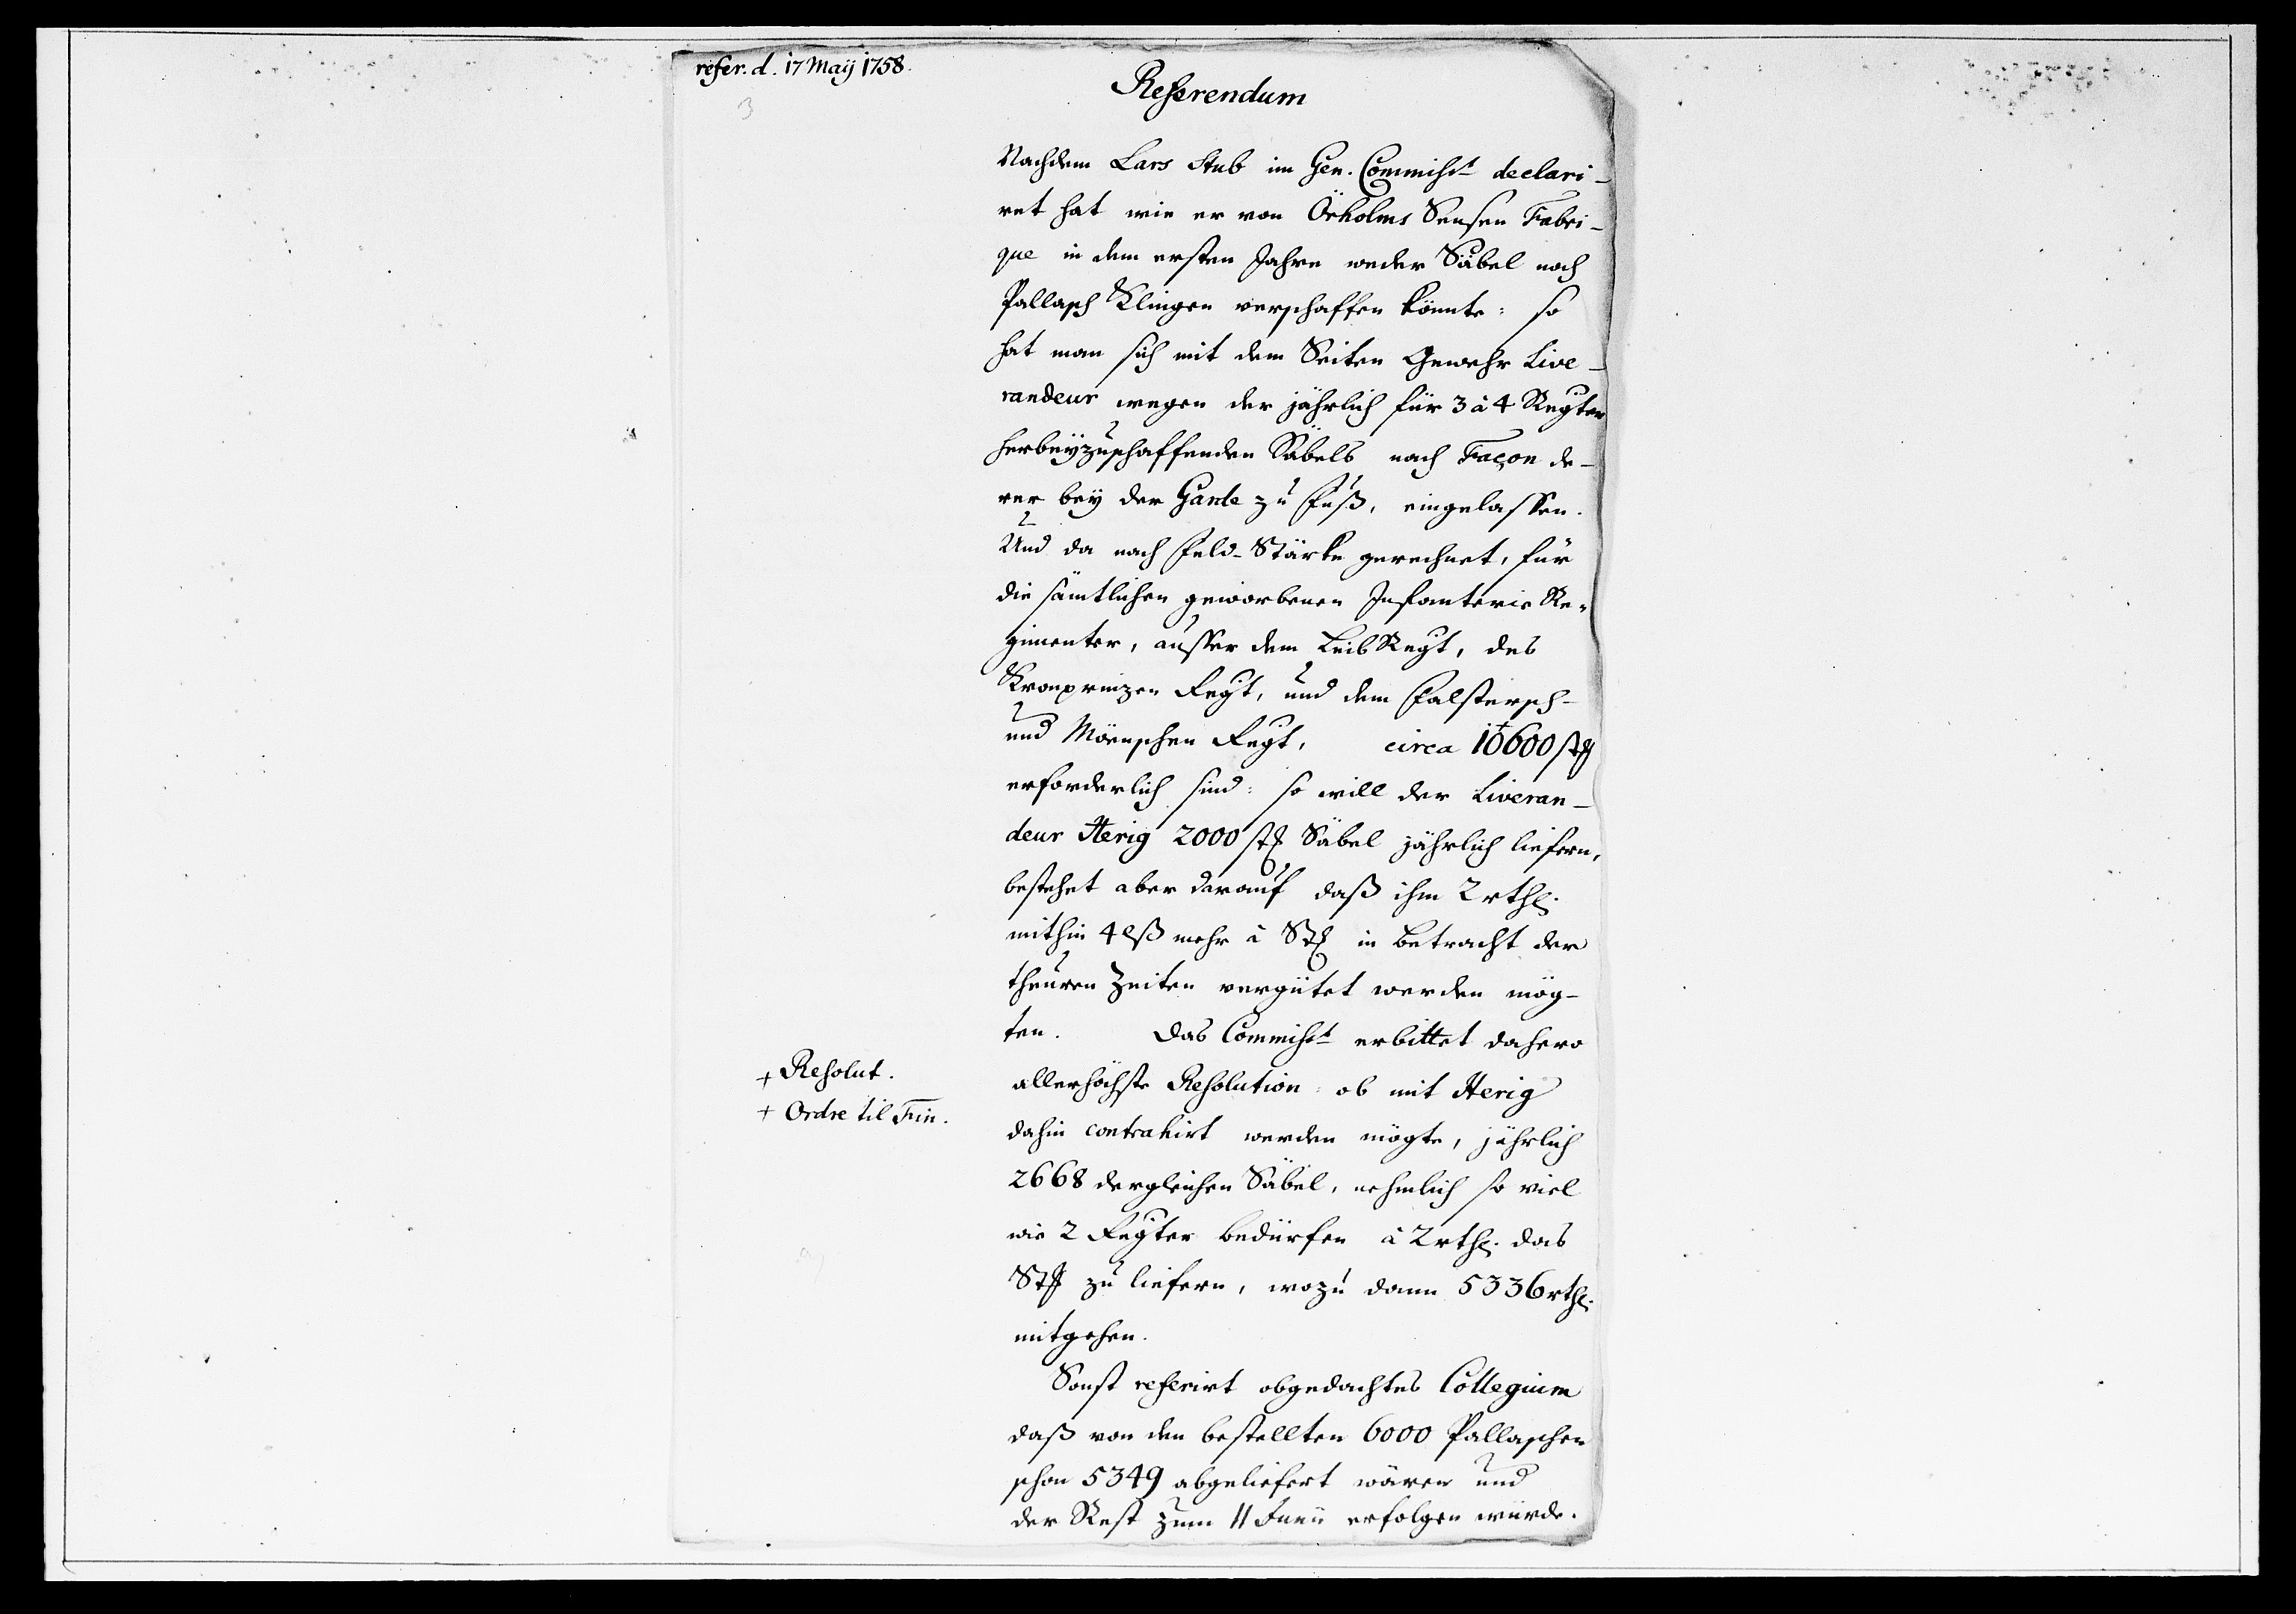 refer. d. 17 Maÿ 1758.
3
Referendum
Nachdem Lars Stub im Gen. Commisst declari-
ret hat wie er von Örholms Sensen Fabri-
que in dem ersten Jahre weder Säbel noch
Pallasch Klingen verschaffen könnte: so
hat man sich mit dem Seiten Gewehr Live-
randeur wegen der jährlich für 3 à 4 Regter
herbeÿzuschaffenden Säbels nach Façon de-
rer beÿ der Garde zu Fuß, eingelassen.
Und da nach Feld-Stärke gerechnet, für
die sämtlichen geworbenen Infanterie Re-
gimenter, ausser dem Leib Regt, des
Kronprinzen Regt, und dem Falstersch-
und Möenschen Regt, circa 10600 stk
erforderlich sind: so will der Liveran-
deur Herig 2000 stk Säbel jährlich liefern,
bestehet aber darauf daß ihm 2 rthl.
mithin 4 lß mehr à Stk in Betracht der
theuren Zeiten vergütet werden mög-
ten. Das Commisst erbittet dahero
+ Resolut.
+ Ordre til Fin.
allerhöchste Resolution: ob mit Herig
dahin contrahirt werden mögte, jährlich
2668 dergleichen Säbel, nehmlich so viel
wie 2 Regter bedürfen à 2 rthl. das
Stk zu liefern, wozu dann 5336 rthl.
mitgehen.
Sonst referirt obgedachtes Collegium
daß von den bestellten 6000 Pallaschen
schon 5349 abgeliefert wären und
der Rest zum 11 Junii erfolgen würde.